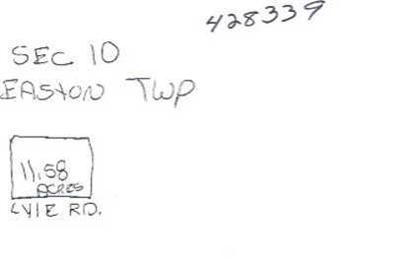 428339
SEC 10
EASTON TWP
11.58
ACRES
RD.